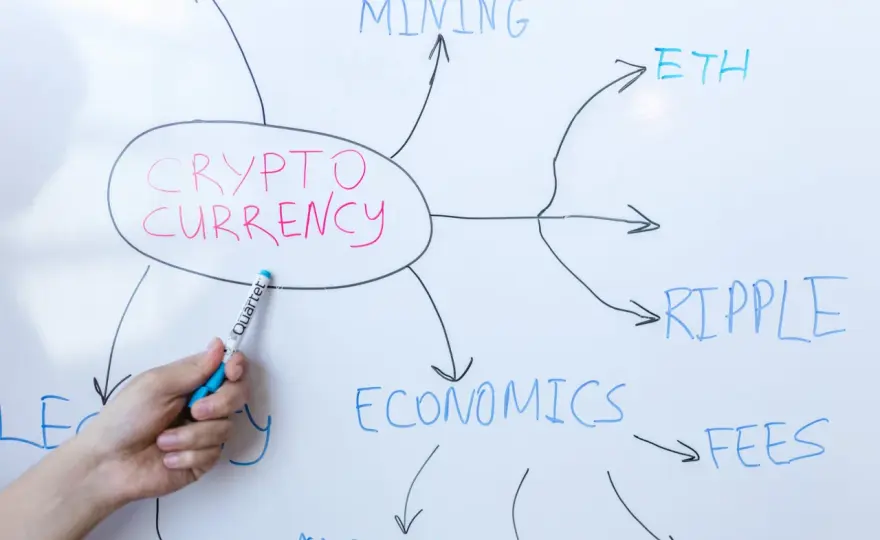 MINING
ETH
CRYPTO
CURRENCY
Quartet
RIPPLE
ECONOMICS
FEES